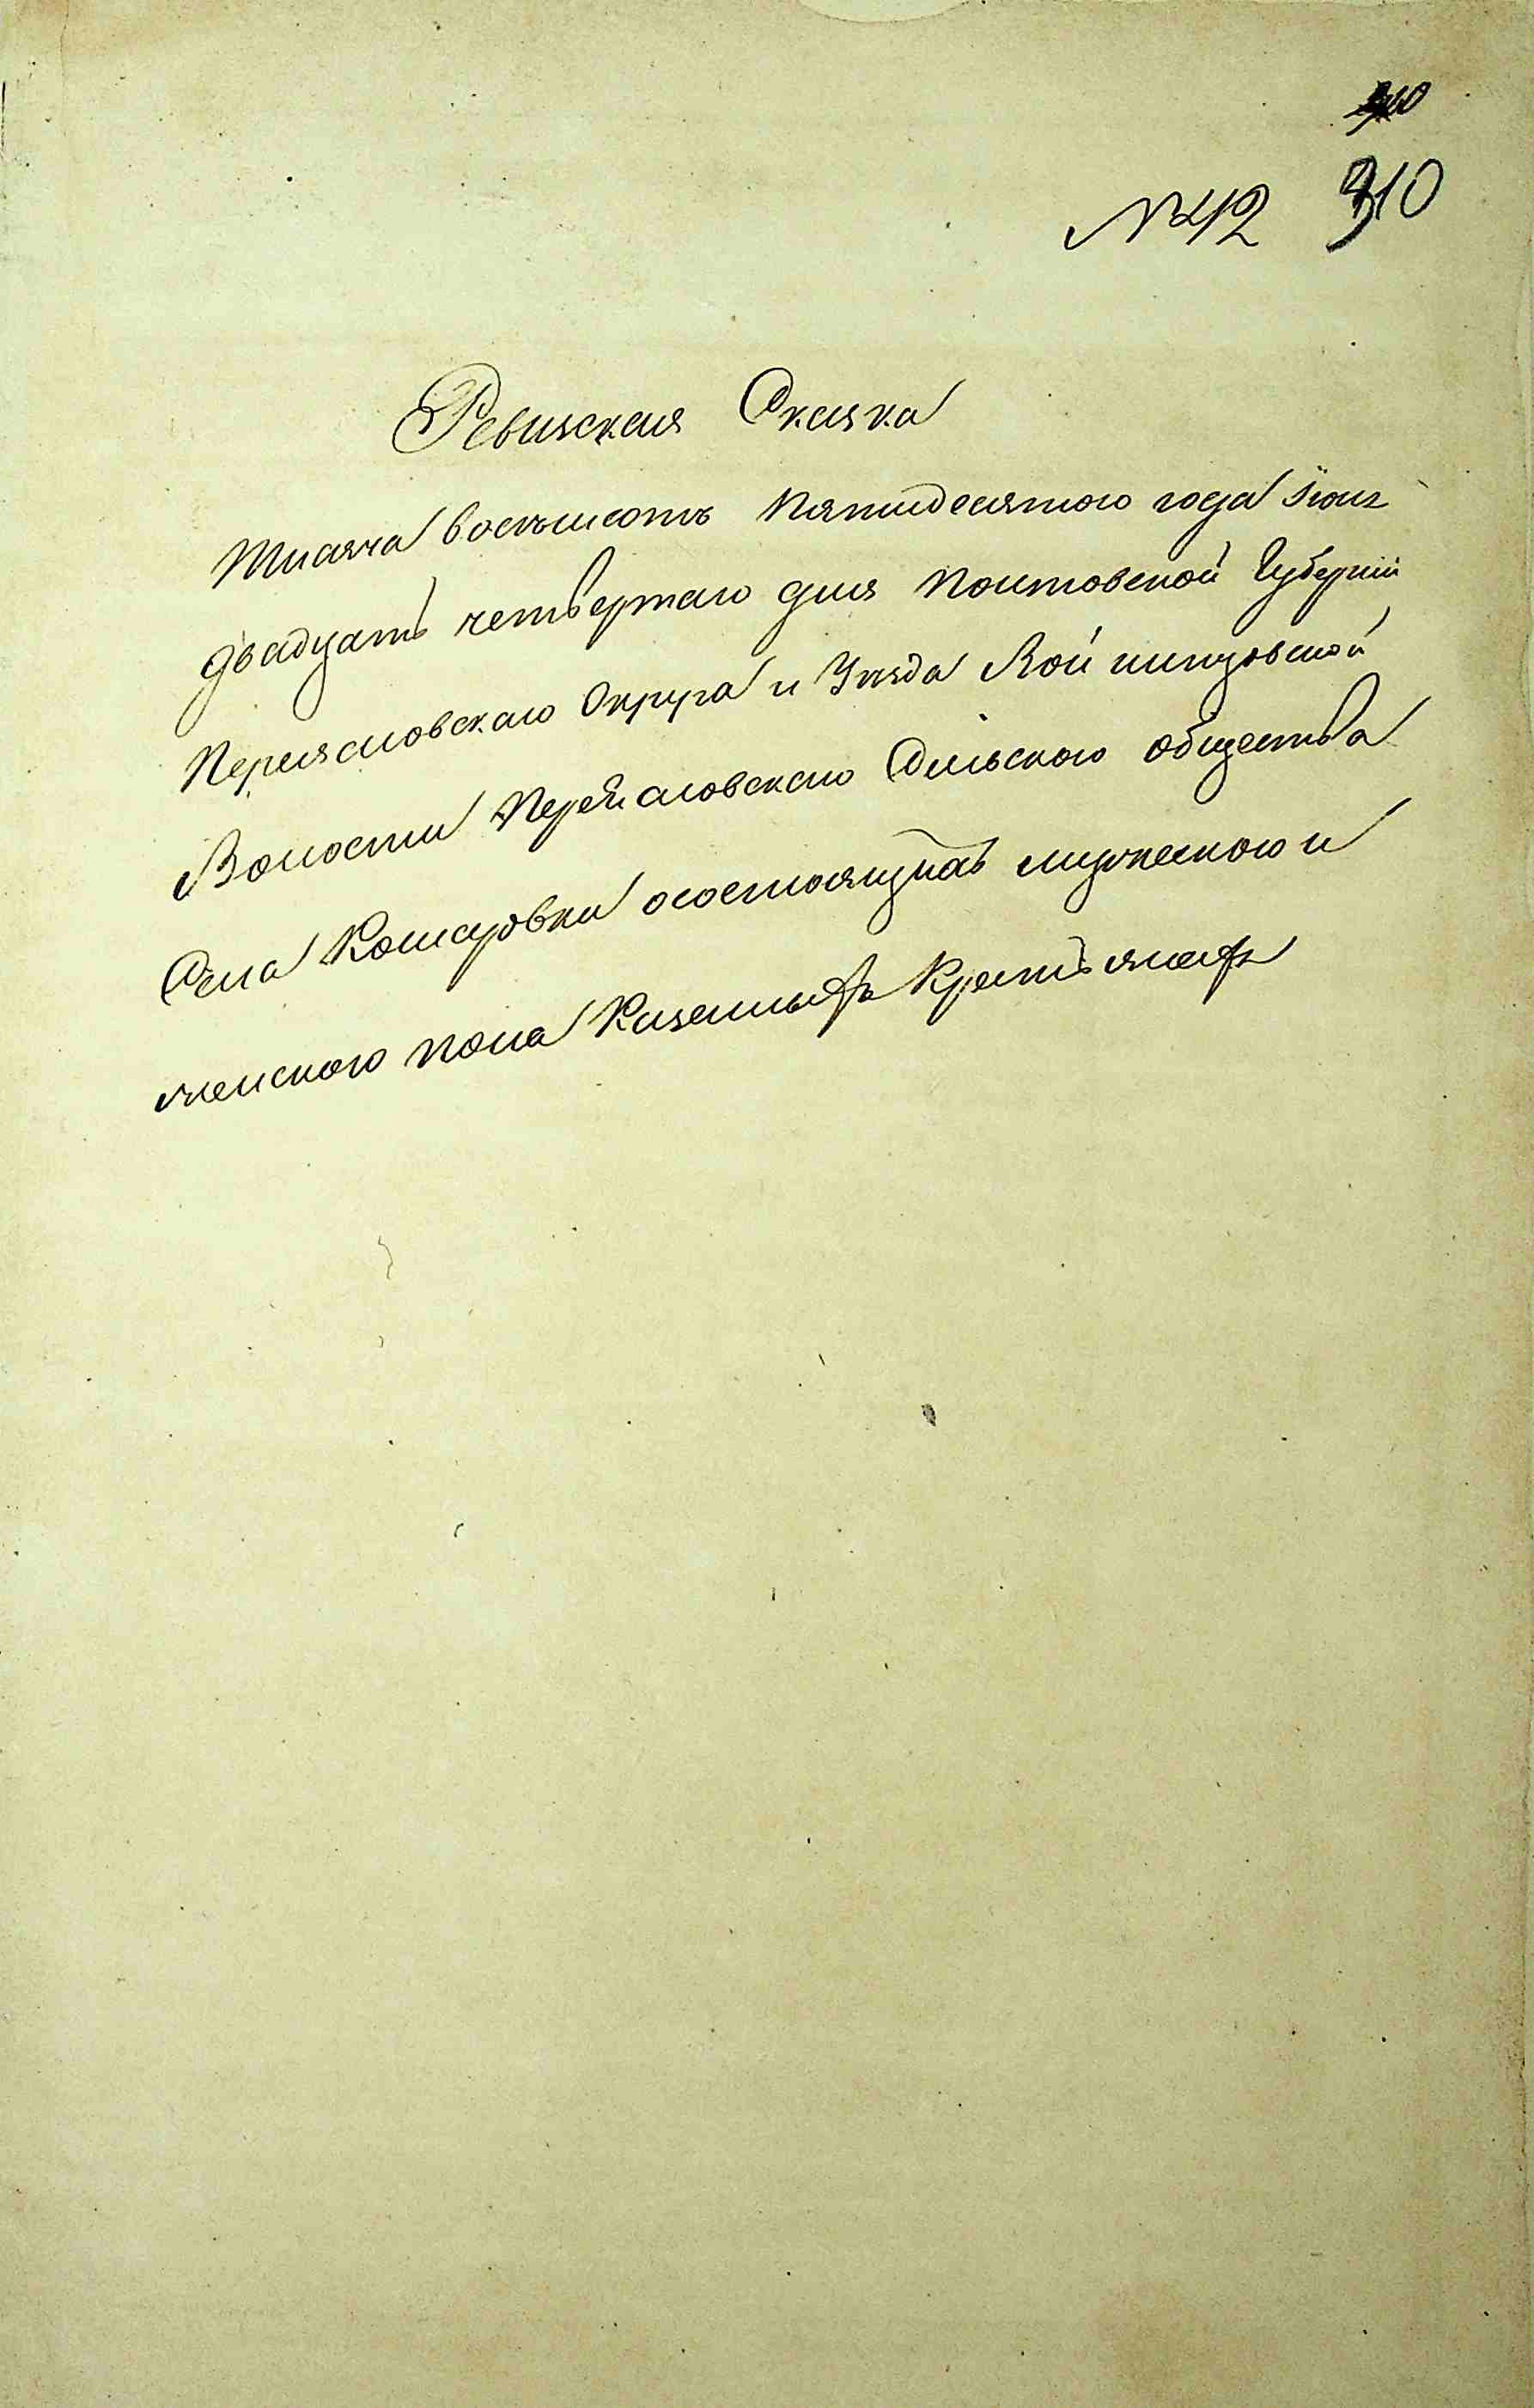 310
№ 42 310
Ревизская Сказка
Тисяча восемьсотъ Пятидесятого года Іюня
двадцать четвертаго дня Полтовской Губерніи
Переясловскаго Округа и Уезда Войтинцовской
Волости Переясловскаго Сельского общества
Села Комаровки осостоящихъ мужескою и
женского пола Казенныхъ Крестьянахъ